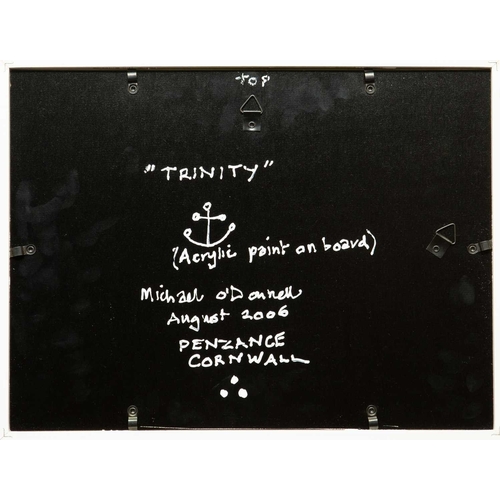 TOP
"TRINITY"
(Acrylic paint on board)
Michael O'Donnell
August 2006
PENZANCE
CORNWALL